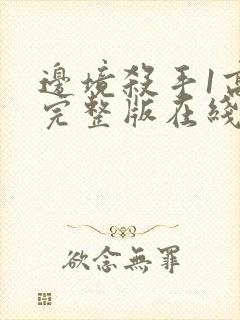 邊境殺手1高
完整版在綫
欲念無罪